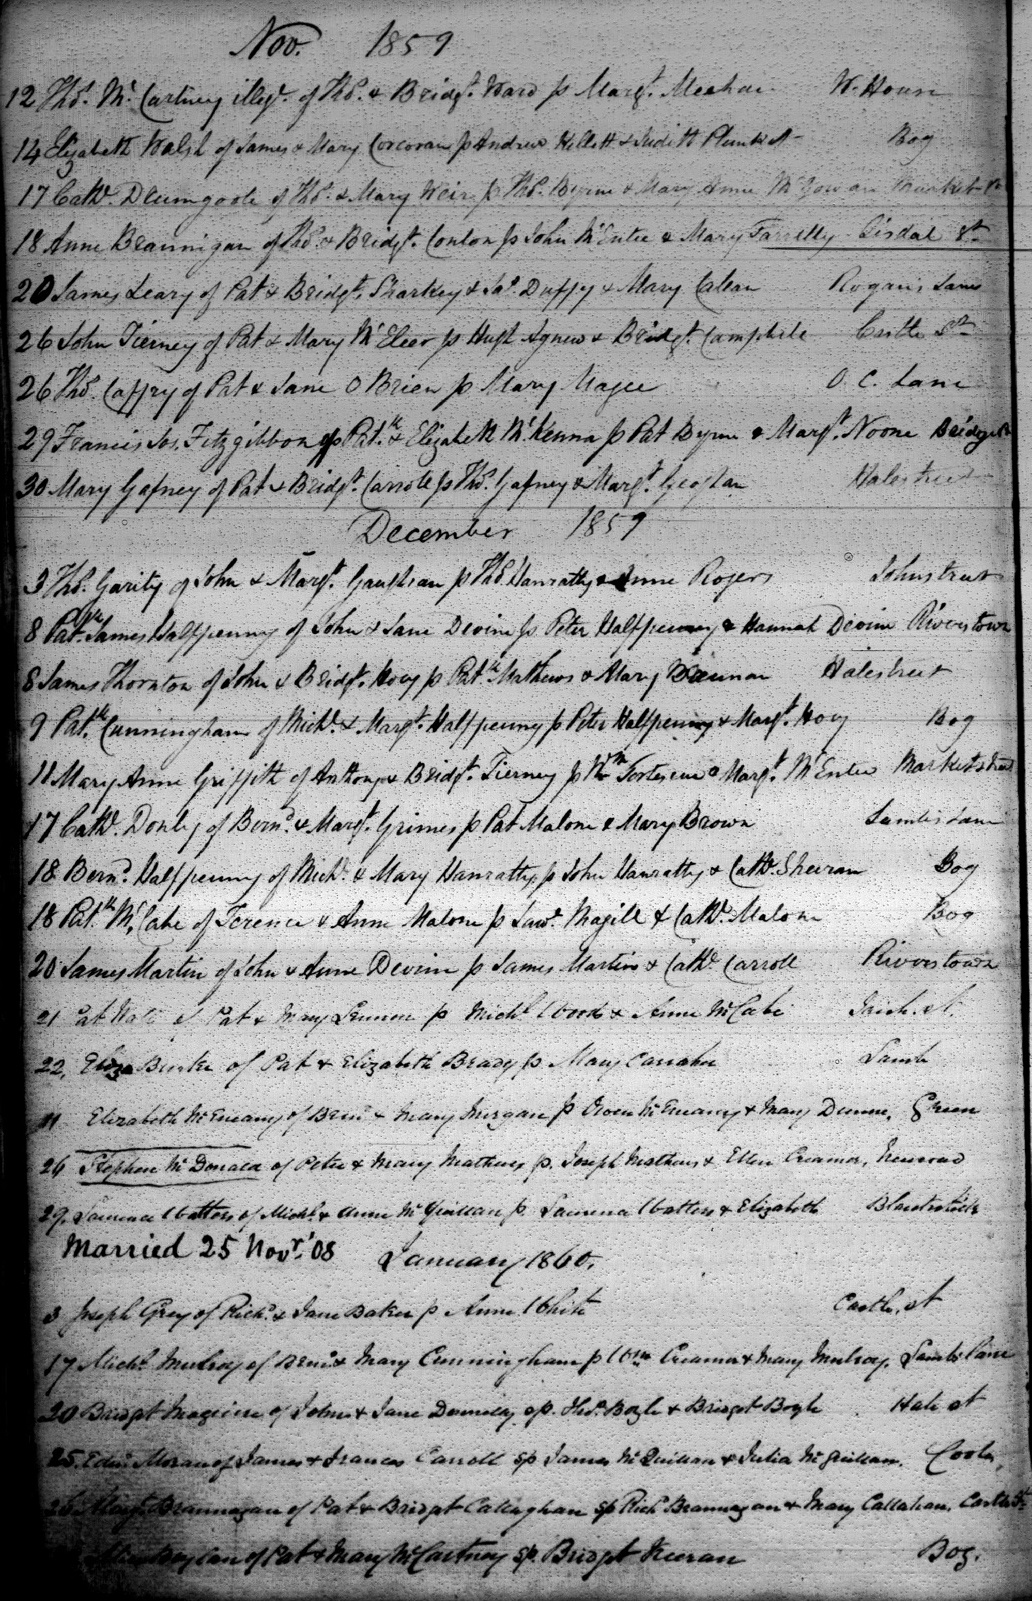 Nov. 1859
12 Tho.s Mc Cartney illeg.t of Tho.s & Bridg.t Ward p Marg.t Meehan W. House
14 Elizabeth Walsh of James & Mary Corcoran p Andrew & Judith Plunkett Bog
17 Cath. Drumgoole of Tho.s & Mary Weir p Tho.s Byrne & Mary Anne McGowan Market St
18 Anne Brannigan of Tho.s & Bridg.t Conlon p John McEntee & Mary Farrelly Cisdal St
20 James Leary of Pat & Bridg.t Sharkey & Ja.s Duffy & Mary Rogans Lane
26 John Tierney of Pat & Mary Mc p Hugh Agnew & Bridg.t Campbele Castle St
26 Tho.s Caffry of Pat & Jane O Brien p Mary Magee O. C. Lane
29 Francis Jos. Fitzgibbon of Pat.k & Elizabeth McKenna p Pat Byrne & Marg.t Noone Bridge St
30 Mary Gafney of Pat & Bridg.t Carroll p Tho.s Gafney & Marg.t Halestreet
December 1859
3 Tho.s Garity of John & Marg.t p Tho.s Hanratty & Anne Rogers Johnstreet
8 Pat.k James Halfpenny of John & Jane Devine p Peter Halfpenny & Hannah Devine Riverstown
8 James Thornton of John & Bridg.t Hoey p Pat.k Mathews & Mary Brennan Halestreet
9 Pat.k Cunningham of Mich.l & Marg.t Halfpenny p Peter Halfpenny & Marg.t Hoey Bog
11 Mary Anne Griffith of Anthony & Bridg.t Tierney p Wm Fortescue & Marg.t McEntee Marketstreet
17 Cath. of Bern.d & Marg.t Grimes p Pat Malone & Mary Brown Lambs Lane
18 Bern.d Halfpenny of Mich.l & Mary Hanratty p John Hanratty & Cath. Sheeran Bog
18 Pat.k McCabe of Terence & Anne Malone p Law. Magill & Cath. Malone Bog
20 James Martin of John & Anne Devine p James Martin & Cath. Carroll Riverstown
21 Pat of Pat & Mary Lennon p Mich.l Woods & Anne McCabe Irish. st.
22, Eliza Burke of Pat & Elizabeth Brady p Mary Carraher Lamb
11 Elizabeth McEneany of Bern.d & Mary Morgan p Owen McEneany & Mary Dunne, Green
26 Stephen McDonald of Peter & Mary Mathews p. Joseph Mathews & Ellen Creamor, Newroad
29, Laurence Watters of Mich.l & Anne McQuillan p. Laurence Watters & Elizabeth
Married 25 Novr. '08 January 1860.
3 Joseph Grey of Rich.d & Jane Baker p Anne White Castle. st
17 Mich.l Mulroy of Bern.d & Mary Cunningham p Wm Creamor & Mary Mulroy. Lambs Lane
20 Bridget of John & Jane Donnelly sp. Tho.s Boyle & Bridget Boyle Hale st
25. Edw. Moran of James & Frances Carroll sp James McQuillan & Julia McQuillan.
Brannagan of Pat & Bridget Callaghan sp Rich.d Brannagan & Mary Callahan, Castle St
of Pat & Mary McCartney sp. Bridget Keeran Bog.